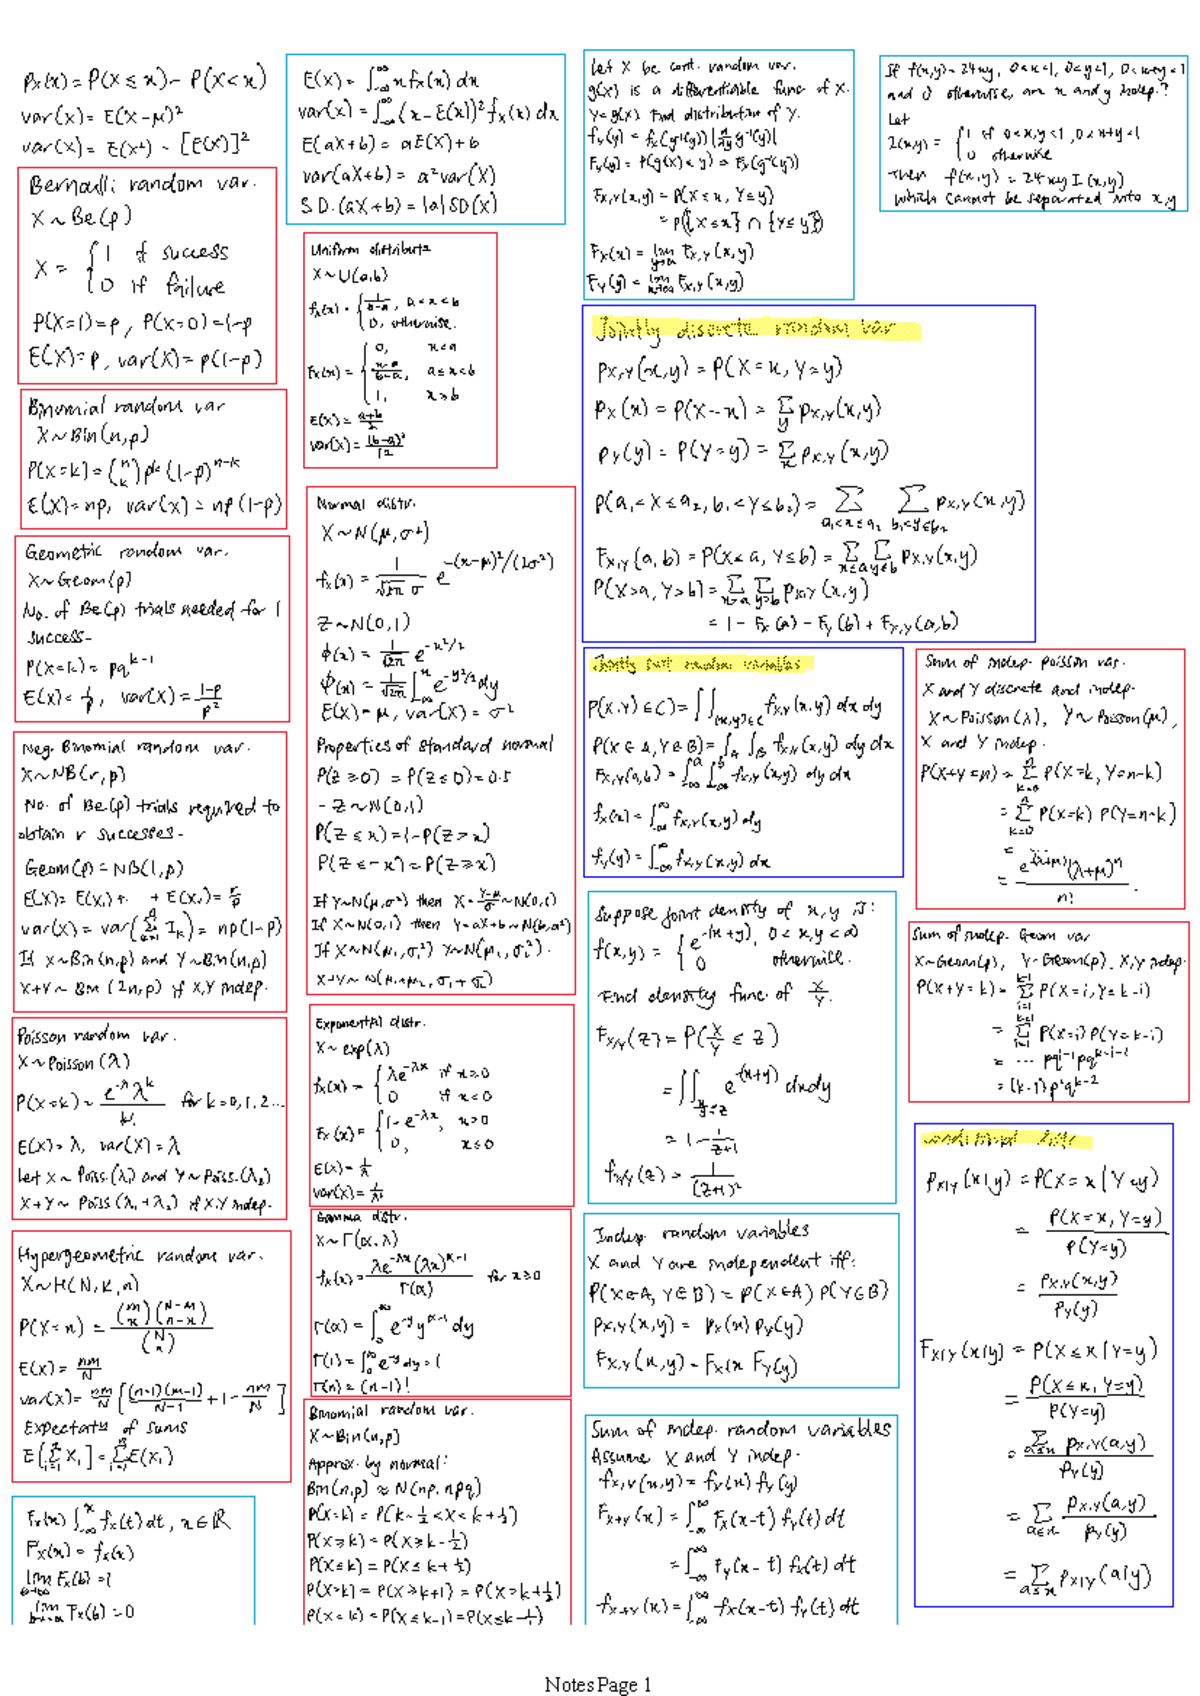 p_X(x) = P(X ≤ x) − P(X < x)
var(X) = E(X−μ)²
var(X) = E(X²) − [E(X)]²
Bernoulli random var.
X ~ Be(p)
X = { 1 if success
0 if failure
P(X=1)=p, P(X=0)=1−p
E(X)=p, var(X)=p(1−p)
Binomial random var
X ~ Bin(n,p)
P(X=k) = (n k) p^k (1−p)^{n−k}
E(X)=np, var(X)=np(1−p)
Geometric random var.
X~Geom(p)
No. of Be(p) trials needed for 1
success.
P(X=k) = pq^{k−1}
E(X)=1/p, var(X)=(1−p)/p²
Neg. Binomial random var.
X~NB(r,p)
No. of Be(p) trials required to
obtain r successes.
Geom(p)=NB(1,p)
E(X)= E(X₁)+ + E(Xᵣ)= r/p
var(X) = var(Σ I_k) = np(1−p)
If X~Bin(n,p) and Y~Bin(n,p)
X+Y ~ Bin (2n,p) if X,Y indep.
Poisson random var.
X ~ Poisson (λ)
P(X=k) = e^{−λ} λ^k / k! for k=0,1,2...
E(X)=λ, var(X)=λ
Let X ~ Poiss.(λ₁) and Y~Poiss.(λ₂)
X+Y ~ Poiss (λ₁+λ₂) if X,Y indep.
Hypergeometric random var.
X~H(N,K,n)
P(X=x) = (m x)(N−m n−x) / (N n)
E(X) = nm/N
var(X)= nm/N [ (n−1)(m−1)/(N−1) + 1 − nm/N ]
Expectatn of sums
E[Σ_{i=1}^n X_i] = Σ_{i=1}^n E(X_i)
F_X(x) ∫_{−∞}^x f_X(t)dt, x∈ℝ
F'_X(x) = f_X(x)
lim F_X(b) =1
lim F_X(b) =0
E(X) = ∫_{−∞}^∞ x f_X(x) dx
var(X) = ∫_{−∞}^∞ (x − E(X))² f_X(x) dx
E(aX+b) = aE(X)+b
var(aX+b) = a² var(X)
S.D.(aX+b) = |a| SD(X)
Uniform distributn
X~U(a,b)
f_X(x) = { 1/(b−a), a<x<b
0, otherwise.
F_X(x) = { 0, x<a
(x−a)/(b−a), a≤x<b
1, x≥b
E(X) = (a+b)/2
var(X) = (b−a)²/12
Normal distr.
X~N(μ,σ²)
f_X(x) = 1/(√2π σ) e^{−(x−μ)²/(2σ²)}
Z~N(0,1)
φ(x) = 1/√2π e^{−x²/2}
Φ(x) = 1/√2π ∫_{−∞}^x e^{−y²/2} dy
E(X)=μ, var(X)=σ²
Properties of standard normal
P(Z≥0) = P(Z≤0)=0.5
−Z~N(0,1)
P(Z≤x)=1−P(Z>x)
P(Z≤−x)=P(Z≥x)
If Y~N(μ,σ²) then X=(Y−μ)/σ ~N(0,1)
If X~N(0,1) then Y=aX+b~N(b,a²)
If X~N(μ₁,σ₁²) Y~N(μ₂,σ₂²).
X+Y ~ N(μ₁+μ₂, σ₁+σ₂)
Exponential distr.
X~exp(λ)
f_X(x) = { λe^{−λx} if x≥0
0 if x<0
F_X(x) = { 1−e^{−λx}, x>0
0, x≤0
E(X)=1/λ
var(X)=1/λ²
Gamma distr.
X~Γ(α,λ)
f_X(x) = λe^{−λx}(λx)^{α−1}/Γ(α) for x≥0
Γ(α)=∫_0^∞ e^{−y} y^{α−1} dy
Γ(1)=∫_0^∞ e^{−y} dy =1
Γ(n) = (n−1)!
Binomial random var.
X~Bin(n,p)
Approx. by normal:
Bin(n,p) ≈ N(np, npq)
P(X=k) = P(k−½<X<k+½)
P(X≥k) = P(X≥k−½)
P(X≤k) = P(X≤k+½)
P(X>k) = P(X≥k+1) = P(X>k+½)
P(X<k) = P(X≤k−1)=P(X≤k−½)
Let X be cont. random var.
g(X) is a differentiable func of X.
Y=g(X). Find distribution of Y.
f_Y(y) = f_X(g⁻¹(y)) |d/dy g⁻¹(y)|
F_Y(y) = P(g(X)<y) ⇒ F_X(g⁻¹(y))
F_{X,Y}(x,y) = P(X≤x, Y≤y)
= P({X≤x} ∩ {Y≤y})
F_X(x) = lim_{y→∞} F_{X,Y}(x,y)
F_Y(y) = lim_{x→∞} F_{X,Y}(x,y)
If f(x,y)=24xy, 0<x<1, 0<y<1, 0<x+y<1
and 0 otherwise, are x and y indep.?
Let
I(x,y) = { 1 if 0<x,y<1, 0<x+y<1
0 otherwise
Then f(x,y) = 24xy I(x,y)
which cannot be separated into x,y
Jointly discrete random var
p_{X,Y}(x,y) = P(X=x, Y=y)
p_X(x) = P(X=x) = Σ_y p_{X,Y}(x,y)
p_Y(y) = P(Y=y) = Σ_x p_{X,Y}(x,y)
P(a₁<X≤a₂, b₁<Y≤b₂) = Σ_{a₁<x≤a₂} Σ_{b₁<y≤b₂} p_{X,Y}(x,y)
F_{X,Y}(a,b) = P(X≤a, Y≤b) = Σ_{x≤a} Σ_{y≤b} p_{X,Y}(x,y)
P(X>a, Y>b) = Σ_{x>a} Σ_{y>b} p_{X,Y}(x,y)
= 1 − F_X(a) − F_Y(b) + F_{X,Y}(a,b)
Jointly random variables
P(X,Y)∈C) = ∫∫_{(x,y)∈C} f_{X,Y}(x,y) dx dy
P(X∈A, Y∈B) = ∫_A ∫_B f_{X,Y}(x,y) dy dx
F_{X,Y}(a,b) = ∫_{−∞}^a ∫_{−∞}^b f_{X,Y}(x,y) dy dx
f_X(x) = ∫_{−∞}^∞ f_{X,Y}(x,y) dy
f_Y(y) = ∫_{−∞}^∞ f_{X,Y}(x,y) dx
Suppose joint density of x,y is:
f(x,y) = { e^{−(x+y)}, 0<x,y<∞
0 otherwise.
Find density func. of X/Y.
F_{X/Y}(z) = P(X/Y ≤ z)
= ∫∫_{x/y≤z} e^{−(x+y)} dx dy
= 1 − 1/(z+1)
f_{X/Y}(z) = 1/(z+1)²
Indep. random variables
X and Y are independent iff:
P(X∈A, Y∈B) = P(X∈A) P(Y∈B)
p_{X,Y}(x,y) = p_X(x) p_Y(y)
F_{X,Y}(x,y) = F_X(x F_Y(y)
Sum of indep. random variables
Assume X and Y indep.
f_{X,Y}(x,y) = f_X(x) f_Y(y)
F_{X+Y}(x) = ∫_{−∞}^∞ F_X(x−t) f_Y(t) dt
= ∫_{−∞}^∞ F_Y(x−t) f_X(t) dt
f_{X+Y}(x) = ∫_{−∞}^∞ f_X(x−t) f_Y(t) dt
Sum of indep. poisson var.
X and Y discrete and indep.
X~Poisson(λ), Y~Poisson(μ),
X and Y indep.
P(X+Y=n) = Σ_{k=0}^n P(X=k, Y=n−k)
= Σ_{k=0}^n P(X=k) P(Y=n−k)
=
= e^{−(λ+μ)}(λ+μ)^n / n!
Sum of indep. Geom var
X~Geom(p), Y~Geom(p). X,Y indep.
P(X+Y=k) = Σ_{i=1}^{k−1} P(X=i, Y=k−i)
= Σ_{i=1}^{k−1} P(X=i) P(Y=k−i)
= ... pq^{i−1} pq^{k−i−1}
= (k−1)p²q^{k−2}
conditional
p_{X|Y}(x|y) = P(X=x | Y=y)
= P(X=x, Y=y) / P(Y=y)
= p_{X,Y}(x,y) / p_Y(y)
F_{X|Y}(x|y) = P(X≤x | Y=y)
= P(X≤x, Y=y) / P(Y=y)
= Σ_{a≤x} p_{X,Y}(a,y) / p_Y(y)
= Σ_{a≤x} p_{X,Y}(a,y) / p_Y(y)
= Σ_{a≤x} p_{X|Y}(a|y)
NotesPage 1